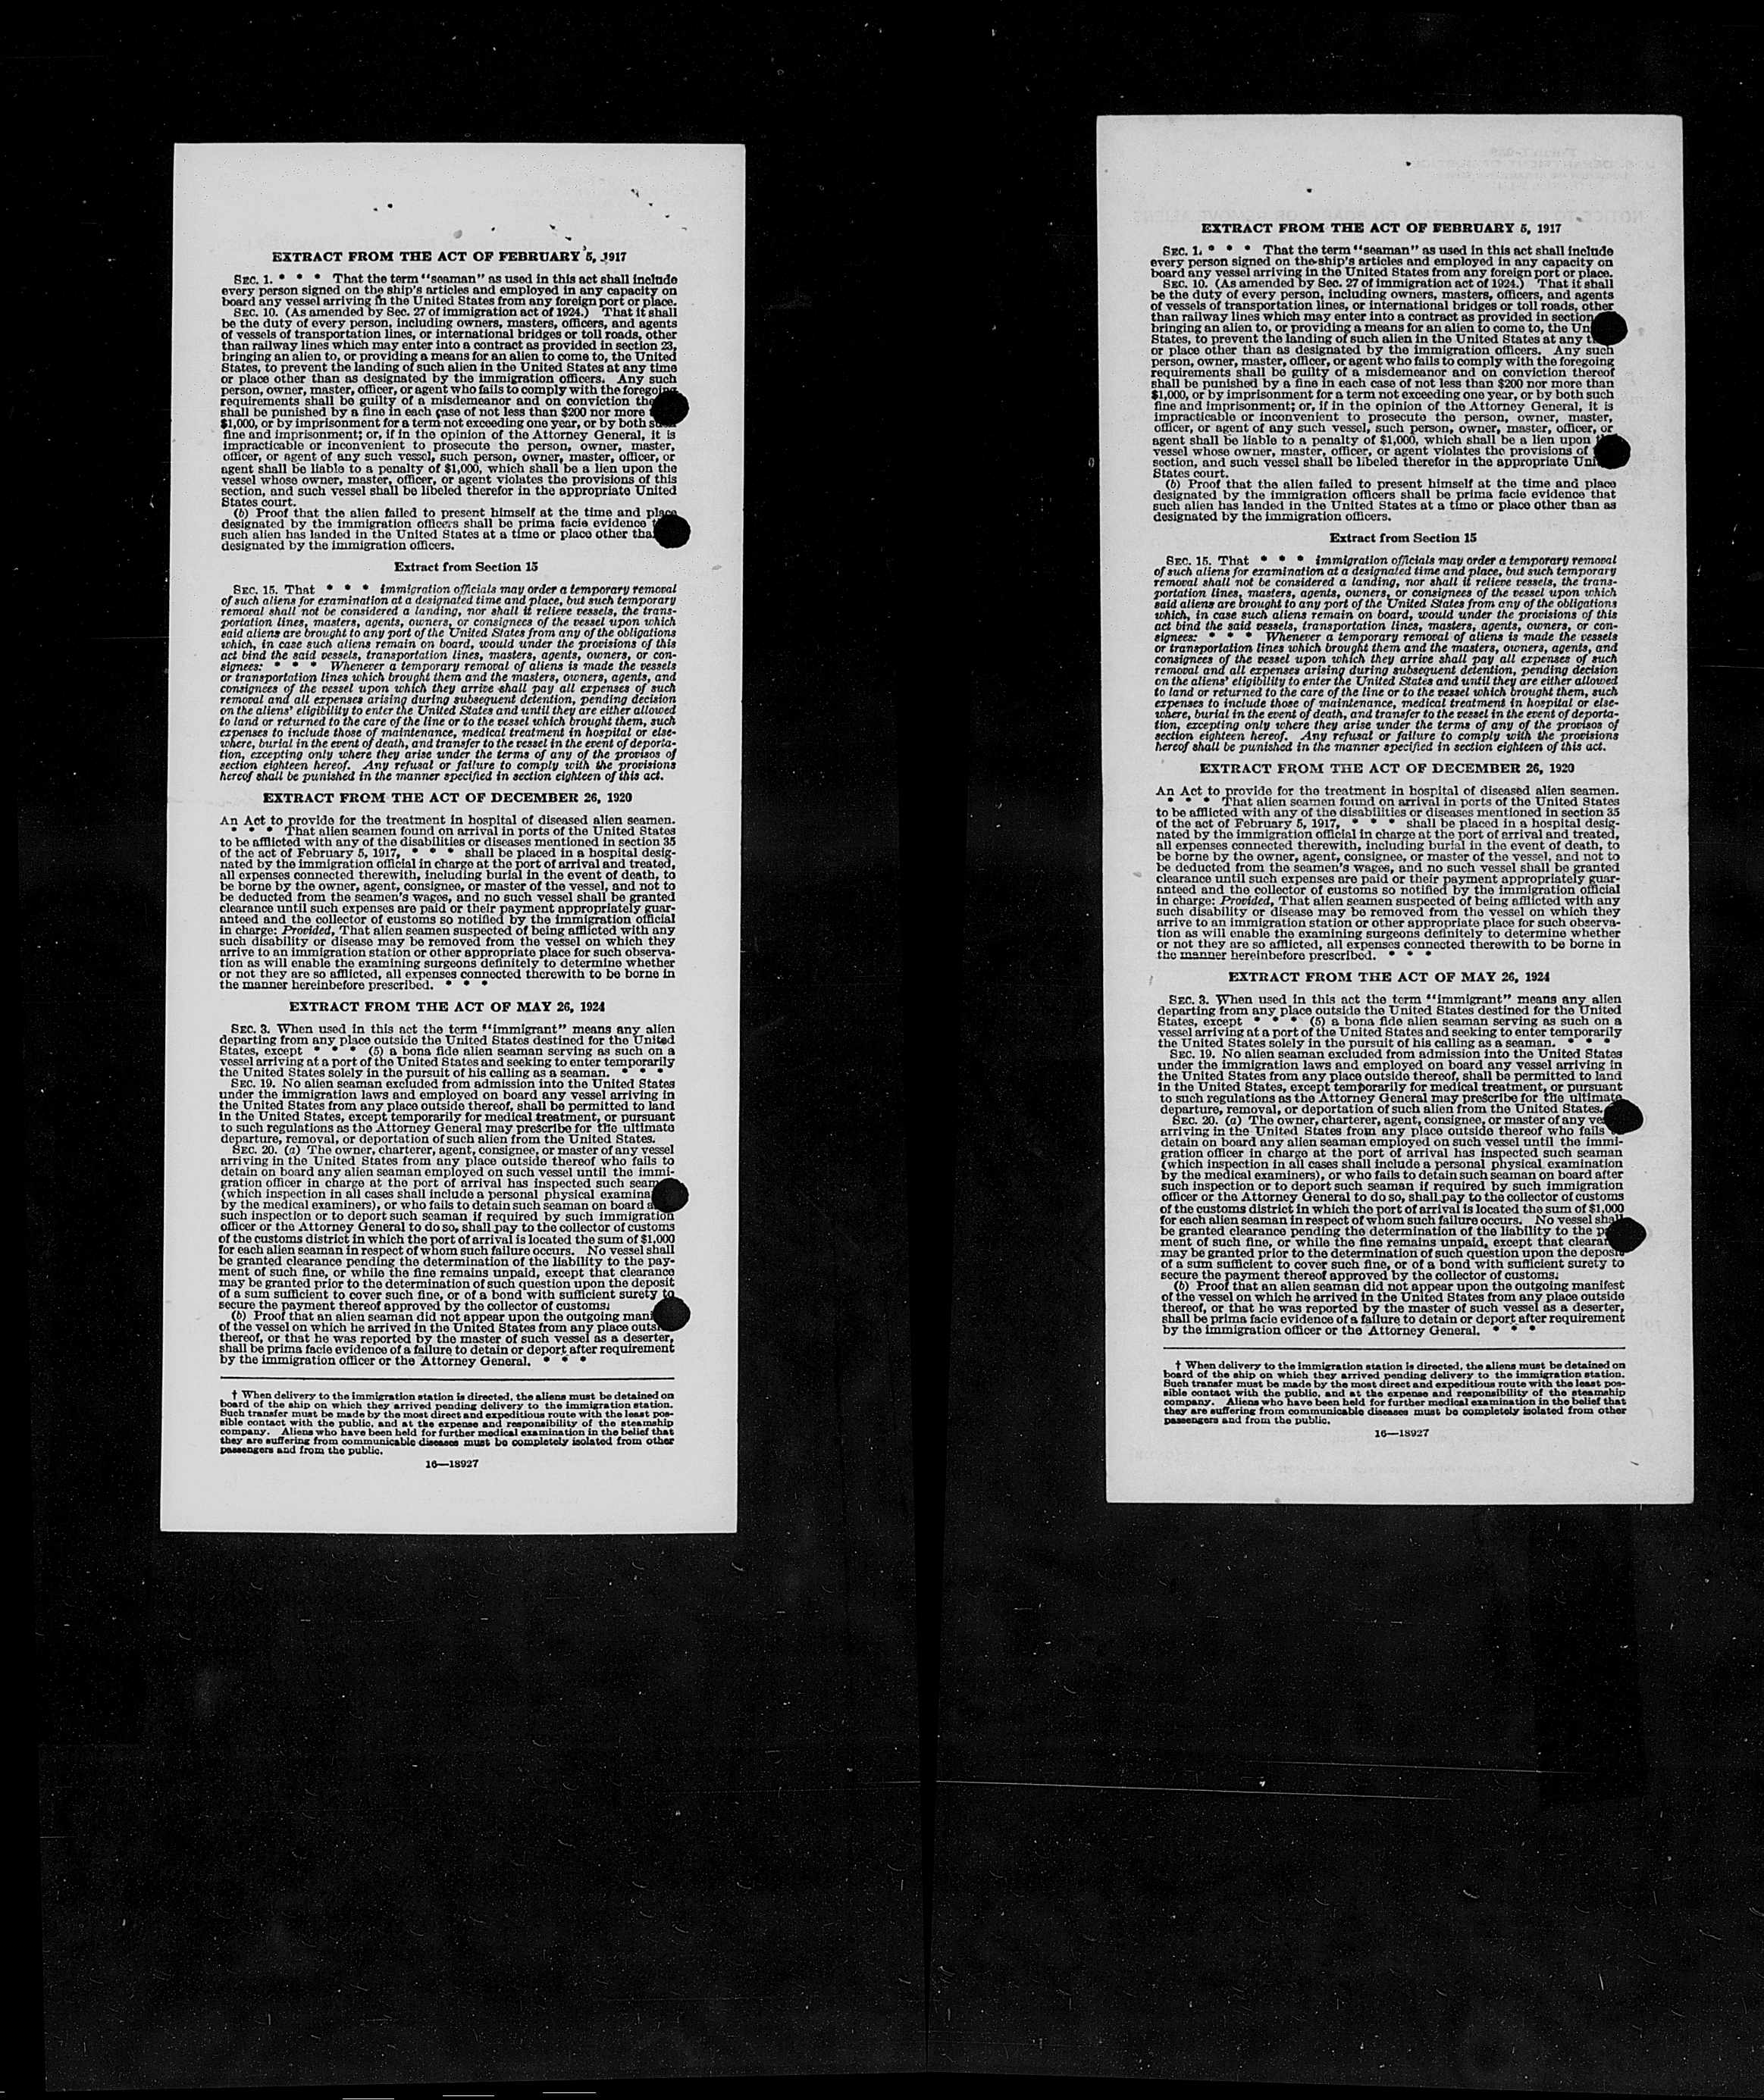 EXTRACT FROM THE ACT OF FEBRUARY 5, 1917
SEC. 1. * * * That the term "seaman" as used in this act shall include
every person signed on the ship's articles and employed in any capacity on
board any vessel arriving in the United States from any foreign port or place.
SEC. 10. (As amended by Sec. 27 of immigration act of 1924.) That it shall
be the duty of every person, including owners, masters, officers, and agents
of vessels of transportation lines, or international bridges or toll roads, other
than railway lines which may enter into a contract as provided in section 23,
bringing an alien to, or providing a means for an alien to come to, the United
States, to prevent the landing of such alien in the United States at any time
or place other than as designated by the immigration officers. Any such
person, owner, master, officer, or agent who fails to comply with the foregoing
requirements shall be guilty of a misdemeanor and on conviction
shall be punished by a fine in each case of not less than $200 nor more
$1,000, or by imprisonment for a term not exceeding one year, or by both
fine and imprisonment; or, if in the opinion of the Attorney General, it is
impracticable or inconvenient to prosecute the person, owner, master,
officer, or agent of any such vessel, such person, owner, master, officer, or
agent shall be liable to a penalty of $1,000, which shall be a lien upon the
vessel whose owner, master, officer, or agent violates the provisions of this
section, and such vessel shall be libeled therefor in the appropriate United
States court.
(b) Proof that the alien failed to present himself at the time and place
designated by the immigration officers shall be prima facie evidence
such alien has landed in the United States at a time or place other
designated by the immigration officers.
Extract from Section 15
SEC. 15. That * * * immigration officials may order a temporary removal
of such aliens for examination at a designated time and place, but such temporary
removal shall not be considered a landing, nor shall it relieve vessels, the trans-
portation lines, masters, agents, owners, or consignees of the vessel upon which
said aliens are brought to any port of the United States from any of the obligations
which, in case such aliens remain on board, would under the provisions of this
act bind the said vessels, transportation lines, masters, agents, owners, or con-
signees: * * * Whenever a temporary removal of aliens is made the vessels
or transportation lines which brought them and the masters, owners, agents, and
consignees of the vessel upon which they arrive shall pay all expenses of such
removal and all expenses arising during subsequent detention, pending decision
on the aliens' eligibility to enter the United States and until they are either allowed
to land or returned to the care of the line or to the vessel which brought them, such
expenses to include those of maintenance, medical treatment in hospital or else-
where, burial in the event of death, and transfer to the vessel in the event of deporta-
tion, excepting only where they arise under the terms of any of the provisos of
section eighteen hereof. Any refusal or failure to comply with the provisions
hereof shall be punished in the manner specified in section eighteen of this act.
EXTRACT FROM THE ACT OF DECEMBER 26, 1920
An Act to provide for the treatment in hospital of diseased alien seamen.
* * * That alien seamen found on arrival in ports of the United States
to be afflicted with any of the disabilities or diseases mentioned in section 35
of the act of February 5, 1917, * * * shall be placed in a hospital desig-
nated by the immigration official in charge at the port of arrival and treated,
all expenses connected therewith, including burial in the event of death, to
be borne by the owner, agent, consignee, or master of the vessel, and not to
be deducted from the seamen's wages, and no such vessel shall be granted
clearance until such expenses are paid or their payment appropriately guar-
anteed and the collector of customs so notified by the immigration official
in charge: Provided, That alien seamen suspected of being afflicted with any
such disability or disease may be removed from the vessel on which they
arrive to an immigration station or other appropriate place for such observa-
tion as will enable the examining surgeons definitely to determine whether
or not they are so afflicted, all expenses connected therewith to be borne in
the manner hereinbefore prescribed. * * *
EXTRACT FROM THE ACT OF MAY 26, 1924
SEC. 3. When used in this act the term "immigrant" means any alien
departing from any place outside the United States destined for the United
States, except * * * (5) a bona fide alien seaman serving as such on a
vessel arriving at a port of the United States and seeking to enter temporarily
the United States solely in the pursuit of his calling as a seaman. * * *
SEC. 19. No alien seaman excluded from admission into the United States
under the immigration laws and employed on board any vessel arriving in
the United States from any place outside thereof, shall be permitted to land
in the United States, except temporarily for medical treatment, or pursuant
to such regulations as the Attorney General may prescribe for the ultimate
departure, removal, or deportation of such alien from the United States.
SEC. 20. (a) The owner, charterer, agent, consignee, or master of any vessel
arriving in the United States from any place outside thereof who fails to
detain on board any alien seaman employed on such vessel until the immi-
gration officer in charge at the port of arrival has inspected such
(which inspection in all cases shall include a personal physical
by the medical examiners), or who fails to detain such seaman on board
such inspection or to deport such seaman if required by such immigration
officer or the Attorney General to do so, shall pay to the collector of customs
of the customs district in which the port of arrival is located the sum of $1,000
for each alien seaman in respect of whom such failure occurs. No vessel shall
be granted clearance pending the determination of the liability to the pay-
ment of such fine, or while the fine remains unpaid, except that clearance
may be granted prior to the determination of such question upon the deposit
of a sum sufficient to cover such fine, or of a bond with sufficient surety to
secure the payment thereof approved by the collector of customs.
(b) Proof that an alien seaman did not appear upon the outgoing
of the vessel on which he arrived in the United States from any place
thereof, or that he was reported by the master of such vessel as a deserter,
shall be prima facie evidence of a failure to detain or deport after requirement
by the immigration officer or the Attorney General. * * *
† When delivery to the immigration station is directed, the aliens must be detained on
board of the ship on which they arrived pending delivery to the immigration station.
Such transfer must be made by the most direct and expeditious route with the least pos-
sible contact with the public, and at the expense and responsibility of the steamship
company. Aliens who have been held for further medical examination in the belief that
they are suffering from communicable diseases must be completely isolated from other
passengers and from the public.
16—18927
EXTRACT FROM THE ACT OF FEBRUARY 5, 1917
SEC. 1. * * * That the term "seaman" as used in this act shall include
every person signed on the ship's articles and employed in any capacity on
board any vessel arriving in the United States from any foreign port or place.
SEC. 10. (As amended by Sec. 27 of immigration act of 1924.) That it shall
be the duty of every person, including owners, masters, officers, and agents
of vessels of transportation lines, or international bridges or toll roads, other
than railway lines which may enter into a contract as provided in section
bringing an alien to, or providing a means for an alien to come to, the
States, to prevent the landing of such alien in the United States at any
or place other than as designated by the immigration officers. Any such
person, owner, master, officer, or agent who fails to comply with the foregoing
requirements shall be guilty of a misdemeanor and on conviction thereof
shall be punished by a fine in each case of not less than $200 nor more than
$1,000, or by imprisonment for a term not exceeding one year, or by both such
fine and imprisonment; or, if in the opinion of the Attorney General, it is
impracticable or inconvenient to prosecute the person, owner, master,
officer, or agent of any such vessel, such person, owner, master, officer, or
agent shall be liable to a penalty of $1,000, which shall be a lien upon
vessel whose owner, master, officer, or agent violates the provisions of
section, and such vessel shall be libeled therefor in the appropriate
States court.
(b) Proof that the alien failed to present himself at the time and place
designated by the immigration officers shall be prima facie evidence that
such alien has landed in the United States at a time or place other than as
designated by the immigration officers.
Extract from Section 15
SEC. 15. That * * * immigration officials may order a temporary removal
of such aliens for examination at a designated time and place, but such temporary
removal shall not be considered a landing, nor shall it relieve vessels, the trans-
portation lines, masters, agents, owners, or consignees of the vessel upon which
said aliens are brought to any port of the United States from any of the obligations
which, in case such aliens remain on board, would under the provisions of this
act bind the said vessels, transportation lines, masters, agents, owners, or con-
signees: * * * Whenever a temporary removal of aliens is made the vessels
or transportation lines which brought them and the masters, owners, agents, and
consignees of the vessel upon which they arrive shall pay all expenses of such
removal and all expenses arising during subsequent detention, pending decision
on the aliens' eligibility to enter the United States and until they are either allowed
to land or returned to the care of the line or to the vessel which brought them, such
expenses to include those of maintenance, medical treatment in hospital or else-
where, burial in the event of death, and transfer to the vessel in the event of deporta-
tion, excepting only where they arise under the terms of any of the provisos of
section eighteen hereof. Any refusal or failure to comply with the provisions
hereof shall be punished in the manner specified in section eighteen of this act.
EXTRACT FROM THE ACT OF DECEMBER 26, 1920
An Act to provide for the treatment in hospital of diseased alien seamen.
* * * That alien seamen found on arrival in ports of the United States
to be afflicted with any of the disabilities or diseases mentioned in section 35
of the act of February 5, 1917, * * * shall be placed in a hospital desig-
nated by the immigration official in charge at the port of arrival and treated,
all expenses connected therewith, including burial in the event of death, to
be borne by the owner, agent, consignee, or master of the vessel, and not to
be deducted from the seamen's wages, and no such vessel shall be granted
clearance until such expenses are paid or their payment appropriately guar-
anteed and the collector of customs so notified by the immigration official
in charge: Provided, That alien seamen suspected of being afflicted with any
such disability or disease may be removed from the vessel on which they
arrive to an immigration station or other appropriate place for such observa-
tion as will enable the examining surgeons definitely to determine whether
or not they are so afflicted, all expenses connected therewith to be borne in
the manner hereinbefore prescribed. * * *
EXTRACT FROM THE ACT OF MAY 26, 1924
SEC. 3. When used in this act the term "immigrant" means any alien
departing from any place outside the United States destined for the United
States, except * * * (5) a bona fide alien seaman serving as such on a
vessel arriving at a port of the United States and seeking to enter temporarily
the United States solely in the pursuit of his calling as a seaman. * * *
SEC. 19. No alien seaman excluded from admission into the United States
under the immigration laws and employed on board any vessel arriving in
the United States from any place outside thereof, shall be permitted to land
in the United States, except temporarily for medical treatment, or pursuant
to such regulations as the Attorney General may prescribe for the ultimate
departure, removal, or deportation of such alien from the United States.
SEC. 20. (a) The owner, charterer, agent, consignee, or master of any
arriving in the United States from any place outside thereof who fails
detain on board any alien seaman employed on such vessel until the immi-
gration officer in charge at the port of arrival has inspected such seaman
(which inspection in all cases shall include a personal physical examination
by the medical examiners), or who fails to detain such seaman on board after
such inspection or to deport such seaman if required by such immigration
officer or the Attorney General to do so, shall pay to the collector of customs
of the customs district in which the port of arrival is located the sum of $1,000
for each alien seaman in respect of whom such failure occurs. No vessel shall
be granted clearance pending the determination of the liability to the
ment of such fine, or while the fine remains unpaid, except that
may be granted prior to the determination of such question upon the deposit
of a sum sufficient to cover such fine, or of a bond with sufficient surety to
secure the payment thereof approved by the collector of customs.
(b) Proof that an alien seaman did not appear upon the outgoing manifest
of the vessel on which he arrived in the United States from any place outside
thereof, or that he was reported by the master of such vessel as a deserter,
shall be prima facie evidence of a failure to detain or deport after requirement
by the immigration officer or the Attorney General. * * *
† When delivery to the immigration station is directed, the aliens must be detained on
board of the ship on which they arrived pending delivery to the immigration station.
Such transfer must be made by the most direct and expeditious route with the least pos-
sible contact with the public, and at the expense and responsibility of the steamship
company. Aliens who have been held for further medical examination in the belief that
they are suffering from communicable diseases must be completely isolated from other
passengers and from the public.
16—18927